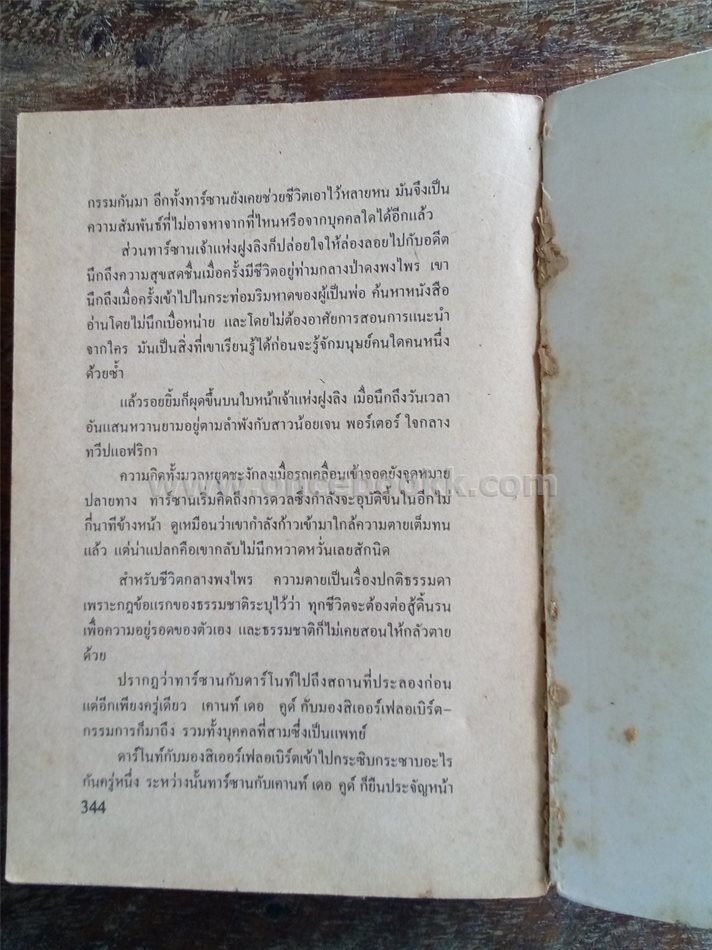 กรรมกันมา อีกทั้งทาร์ซานยังเคยช่วยชีวิตเอาไว้หลายหน มันจึงเป็น
ความสัมพันธ์ที่ไม่อาจหาจากที่ไหนหรือจากบุคคลใดได้อีกแล้ว
ส่วนทาร์ซานเจ้าแห่งฝูงลิงก็ปล่อยใจให้ล่องลอยไปกับอดีต
นึกถึงความสุขสดชื่นเมื่อครั้งมีชีวิตอยู่ท่ามกลางป่าดงพงไพร เขา
นึกถึงเมื่อครั้งเข้าไปในกระท่อมริมหาดของผู้เป็นพ่อ ค้นหาหนังสือ
อ่านโดยไม่นึกเบื่อหน่าย และโดยไม่ต้องอาศัยการสอนการแนะนำ
จากใคร มันเป็นสิ่งที่เขาเรียนรู้ได้ก่อนจะรู้จักมนุษย์คนใดคนหนึ่ง
ด้วยซ้ำ
แล้วรอยยิ้มก็ผุดขึ้นบนใบหน้าเจ้าแห่งฝูงลิง เมื่อนึกถึงวันเวลา
อันแสนหวานยามอยู่ตามลำพังกับสาวน้อยเจน พอร์เตอร์ ใจกลาง
ทวีปแอฟริกา
ความคิดทั้งมวลหยุดชะงักลงเมื่อรถเคลื่อนเข้าจอดยังจุดหมาย
ปลายทาง ทาร์ซานเริ่มคิดถึงการดวลซึ่งกำลังจะอุบัติขึ้นในอีกไม่
กี่นาทีข้างหน้า ดูเหมือนว่าเขากำลังก้าวเข้ามาใกล้ความตายเต็มทน
แล้ว แต่น่าแปลกคือเขากลับไม่นึกหวาดหวั่นเลยสักนิด
สำหรับชีวิตกลางพงไพร ความตายเป็นเรื่องปกติธรรมดา
เพราะกฎข้อแรกของธรรมชาติระบุไว้ว่า ทุกชีวิตจะต้องต่อสู้ดิ้นรน
เพื่อความอยู่รอดของตัวเอง และธรรมชาติก็ไม่เคยสอนให้กลัวตาย
ด้วย
ปรากฏว่าทาร์ซานกับดาร์โนท์ไปถึงสถานที่ประลองก่อน
แต่อีกเพียงครู่เดียว เคานท์ เดอ คูด์ กับมองสิเออร์เฟลอเบิร์ต-
กรรมการก็มาถึง รวมทั้งบุคคลที่สามซึ่งเป็นแพทย์
ดาร์โนท์กับมองสิเออร์เฟลอเบิร์ตเข้าไปกระซิบกระซาบอะไร
กันครู่หนึ่ง ระหว่างนั้นทาร์ซานกับเคานท์ เดอ คูด์ ก็ยืนประจัญหน้า
344